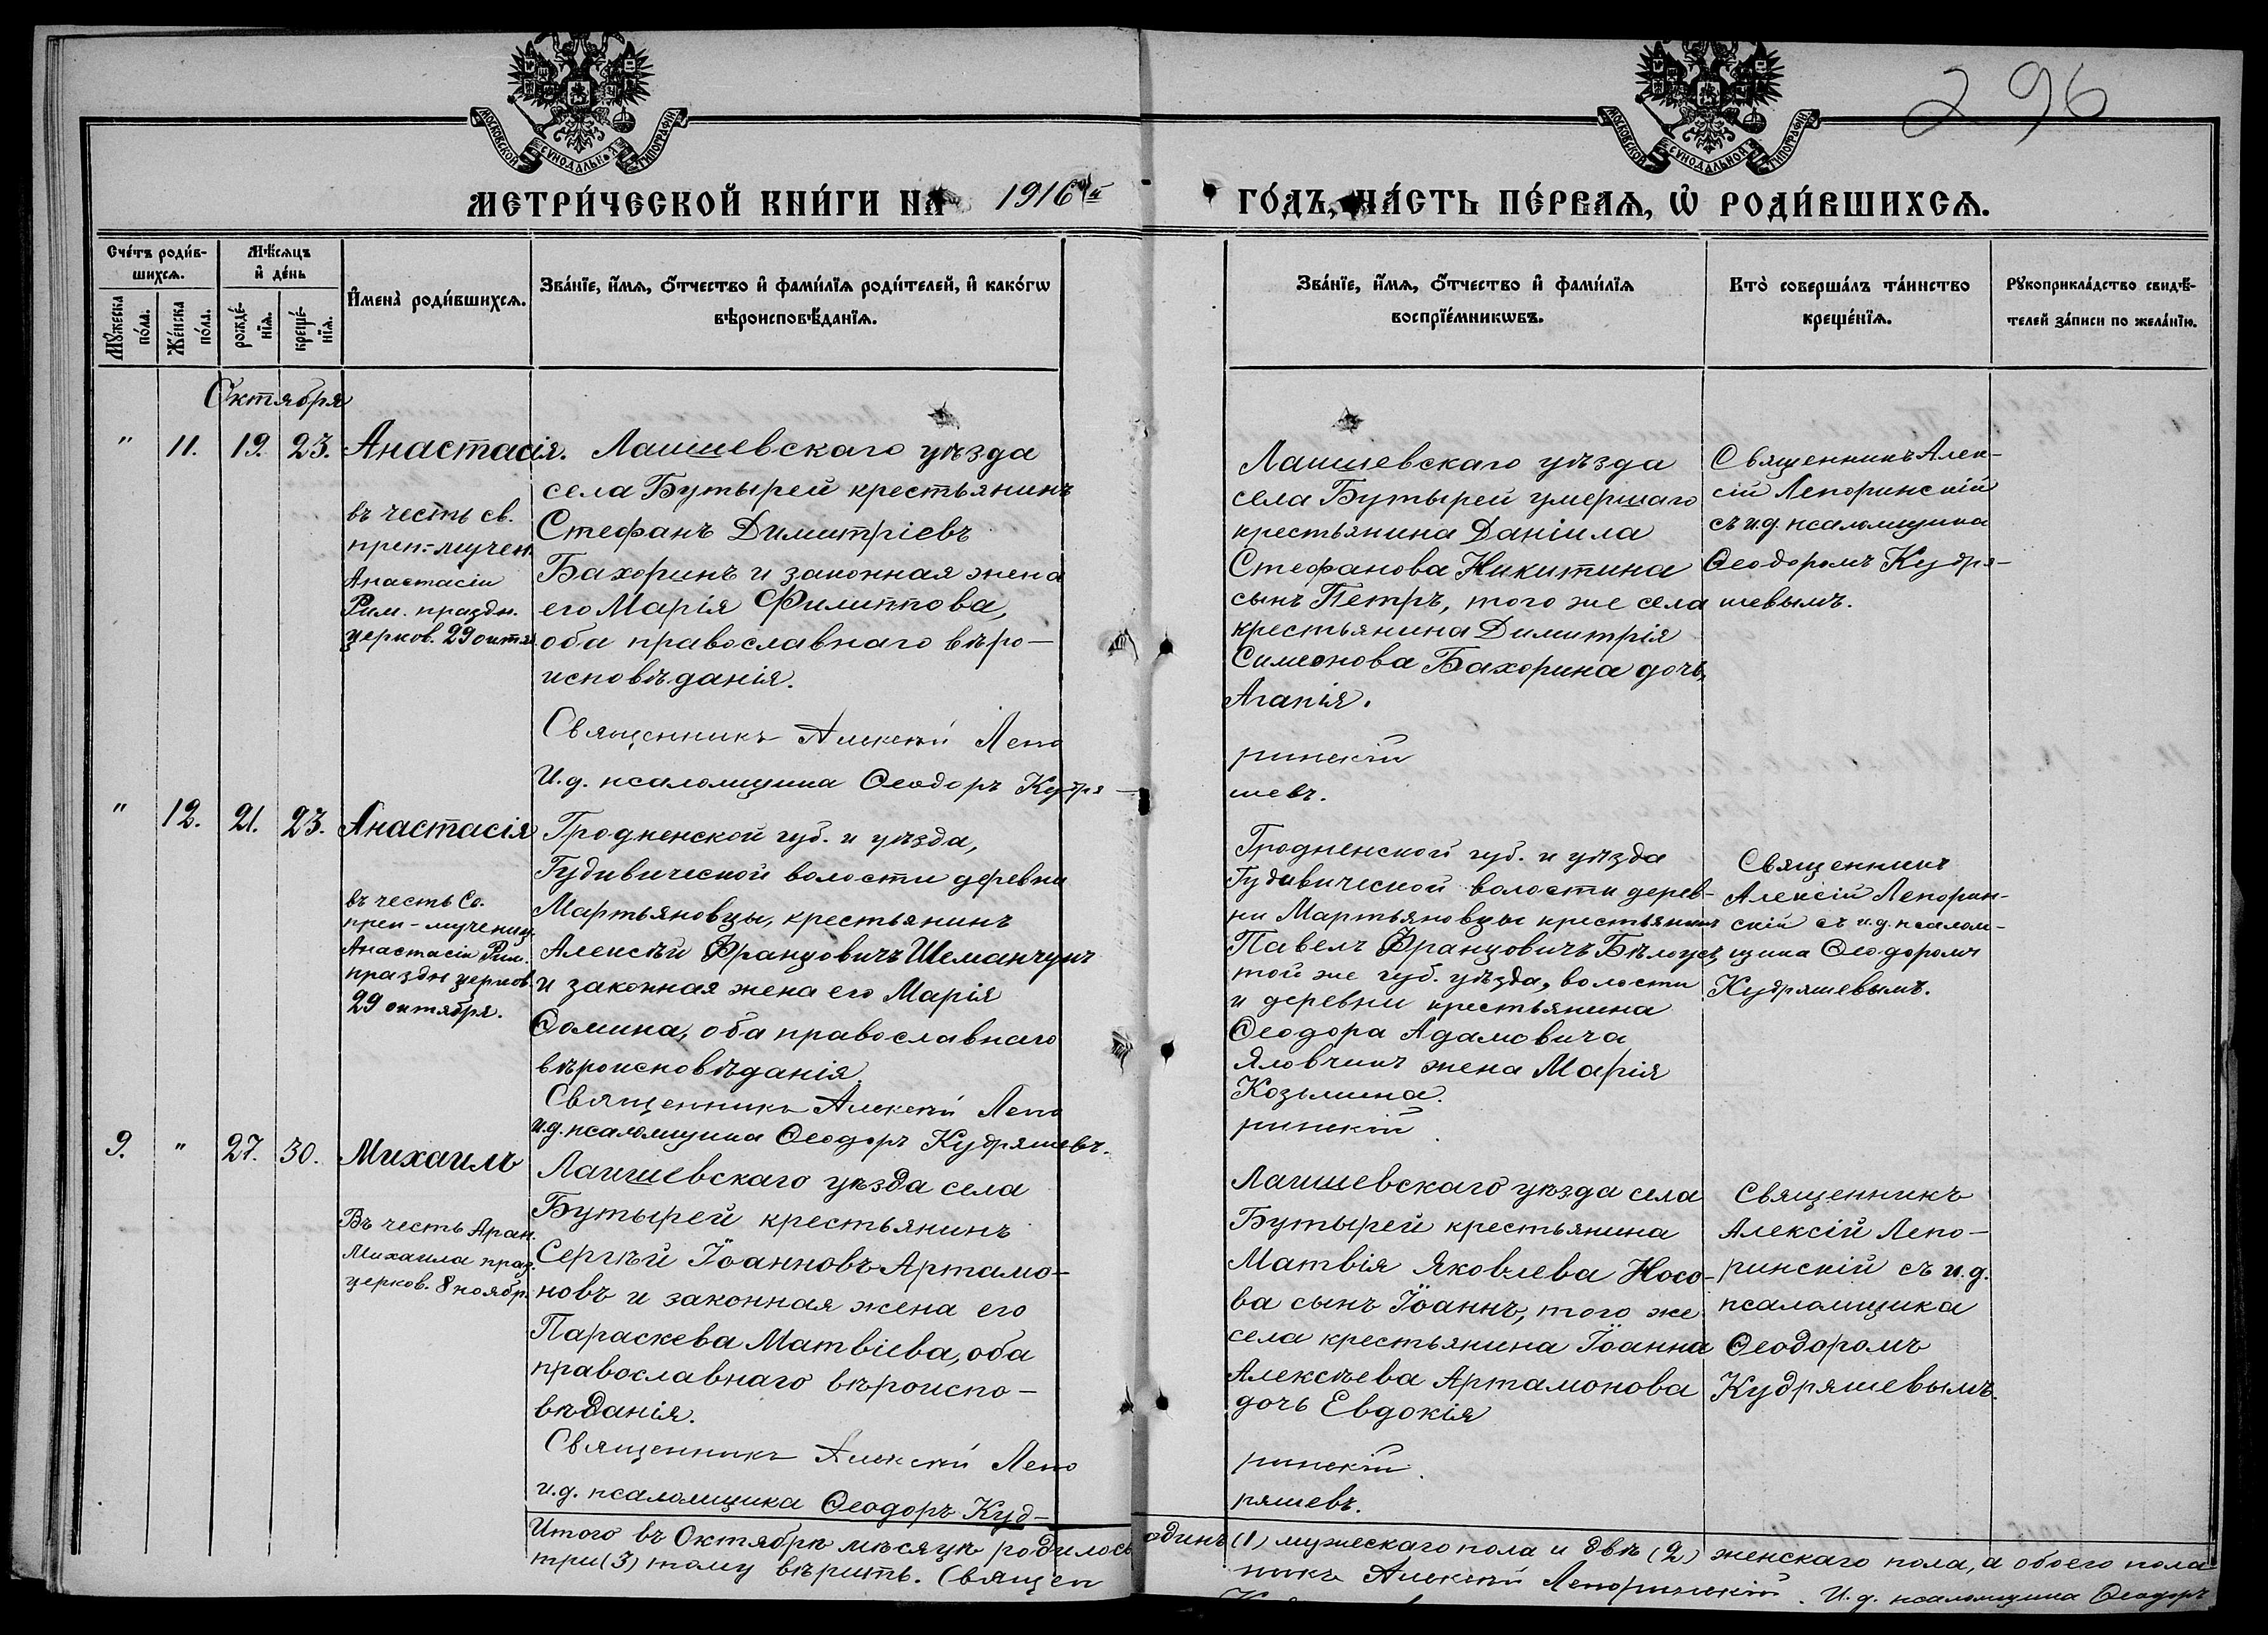 296
МОСКОВСКОЙ СУНОДАЛЬНОЙ ТИПОГРАФІИ
МОСКОВСКОЙ СУНОДАЛЬНОЙ ТИПОГРАФІИ
МЕТРИ́ЧЕСКОЙ КНИ́ГИ НА 1916й
ГО́ДЪ, ЧА́СТЬ ПЕ́РВАѦ, Ѡ҆ РОДИ́ВШИХСѦ.
Сче́тъ роди́в-
шихсѧ.
Мꙋ́жеска
по́ла.
Же́нска
по́ла.
Мѣ́сѧцъ
и҆ де́нь
рожде́-
нїѧ.
креще́-
нїѧ.
И҆мена̀ роди́вшихсѧ.
Зва́нїе, и҆́мѧ, ѻ҆́тчество и҆ фами́лїѧ роди́телей, и҆ како́гѡ
вѣроисповѣ́данїѧ.
Зва́нїе, и҆́мѧ, ѻ҆́тчество и҆ фами́лїѧ
воспрїе́мникѡвъ.
Кто̀ соверша́лъ та́инство
креще́нїѧ.
Рꙋкоприкла́дство свидѣ́-
телей за́писи по жела́нїю.
Октября
" 11. 19. 23. Анастасія.
въ честь св.
преп.-мучен.
Анастасіи
Рим. праздн.
церков. 29 октя.
Лаишевскаго уѣзда
села Бутырей крестьянинъ
Стефанъ Димитріевъ
Бахоринъ и законная жена
его Марія Филиппова,
оба православнаго вѣро-
исповѣданія.
Священникъ Алексѣй Лепо
И.д. псаломщика Ѳеодоръ Кудря-
Лаишевскаго уѣзда
села Бутырей умершаго
крестьянина Даніила
Стефанова Никитина
сынъ Петръ, того же села
крестьянина Димитрія
Симеонова Бахорина дочь,
Агапія.
ринскій
шевъ.
Священникъ Алек-
сій Лепоринскій
съ и.д. псаломщика
Ѳеодоромъ Кудря-
шевымъ.
" 12. 21. 23. Анастасія
въ честь Св.
преп-мучениц.
Анастасіи Рим.
праздн церков.
29 октября.
Гродненской губ. и уѣзда,
Гудивической волости деревни
Мартьяновцы, крестьянинъ
Алексѣй Францовичъ Шеманчукъ
и законная жена его Марія
Ѳомина, оба православнаго
вѣроисповѣданія.
Священникъ Алексѣй Лепо
и.д. псаломщика Ѳеодоръ Кудряшевъ.
Гродненской губ. и уѣзда
Гудивической волости дерев-
ни Мартьяновцы крестьянинъ
Павелъ Францовичъ Бѣлоусъ,
той же губ. уѣзда, волости
и деревни крестьянина
Ѳеодора Адамовича
Яловчикъ жена Марія
Козьмина.
ринскій
Священникъ
Алексій Леporин-
скій съ и.д. псалом-
щика Ѳеодоромъ
Кудряшевымъ.
9. " 27. 30. Михаилъ
Въ честь Архан.
Михаила праз.
церков. 8 ноябр.
Лаишевскаго уѣзда села
Бутырей крестьянинъ
Сергѣй Іоанновъ Артамо-
новъ и законная жена его
Параскева Матвіева, оба
православнаго вѣроиспо-
вѣданія.
Священникъ Алексѣй Лепо
и.д. псаломщика Ѳеодоръ Куд-
Лаишевскаго уѣзда села
Бутырей крестьянина
Матвія Яковлева Носо-
ва сынъ Іоаннъ, того же
села крестьянина Іоанна
Алексѣева Артамонова
дочь Евдокія
ринскій.
ряшевъ.
Священникъ
Алексій Лепо-
ринскій съ и.д.
псаломщика
Ѳеодоромъ
Кудряшевымъ.
Итого въ Октябрѣ мѣсяцѣ родилось одинъ (1) мужескаго пола и двѣ (2) женскаго пола, а обоего пола
три (3) тому вѣрить. Священникъ Алексѣй Лепоринскій. И.д. псаломщика Ѳеодоръ